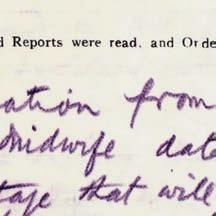 d Reports were read, and Orde
ation from
midwife date
tage that will